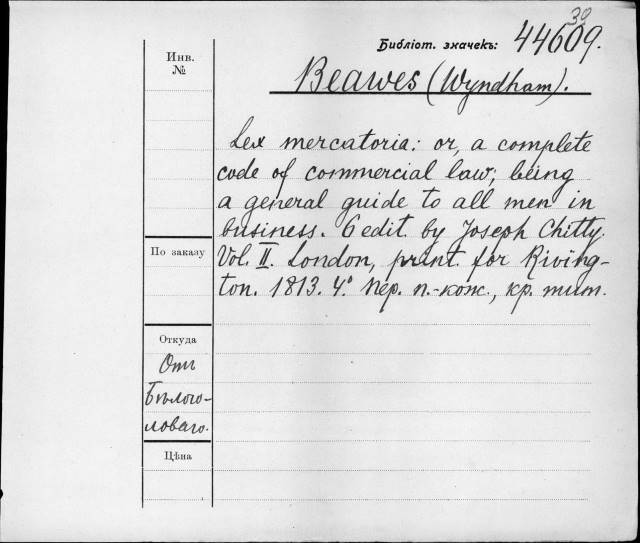 30
Библіот. значекъ: 44609.
Инв.
№
Beawes (Wyndham).
Lex mercatoria: or, a complete
code of commercial law; being
a general guide to all men in
business. 6 edit. by Joseph Chitty.
По заказу
Vol. II. London, print. for Riving-
ton. 1813. 4° Пер. п.-кож., кр. тит.
Откуда
Отъ
Бѣлого-
ловаго.
Цѣна